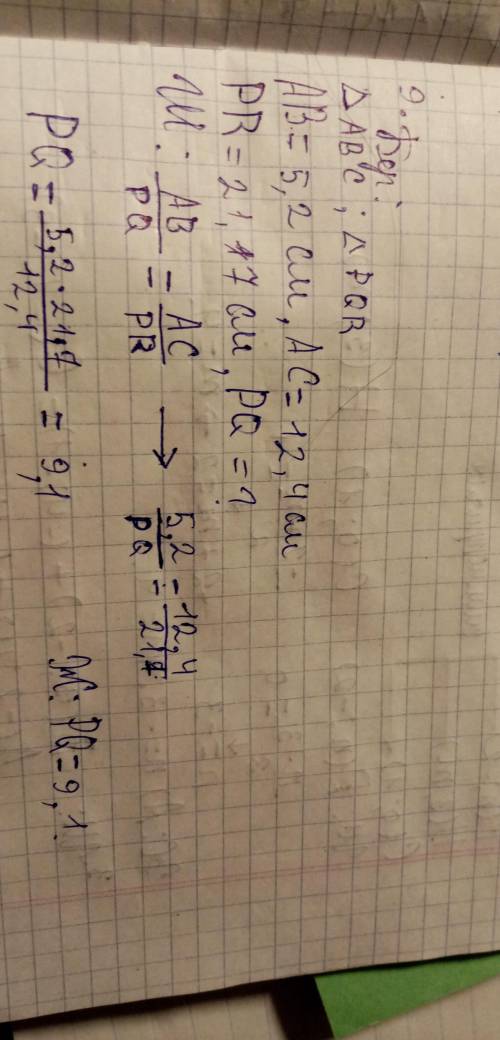 9. Бер:
△ABC; △PQR
AB = 5,2 см, AC = 12,4 см
PR = 21,7 см, PQ = ?
Ш: AB/PQ = AC/PR → 5,2/PQ = 12,4/21,7
PQ = 5,2·21,7/12,4 = 9,1
Ж: PQ = 9,1.